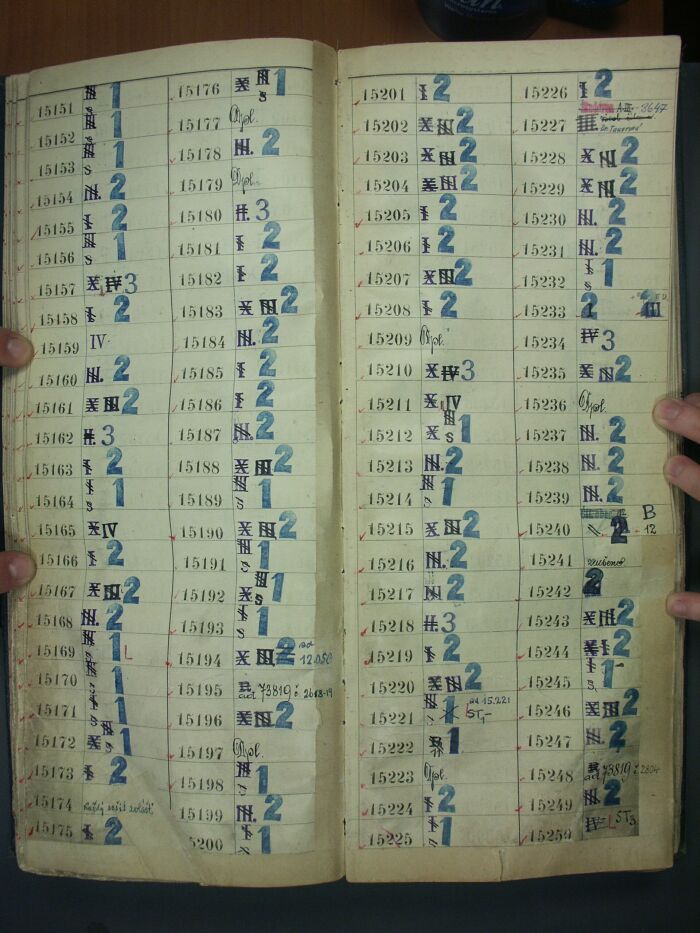 15151 N s 1
15152 N s 1
15153 N s 1
15154 III. 2
15155 I 2
15156 N s 1
15157 X IV 3
15158 I 2
15159 IV.
15160 III. 2
15161 X III 2
15162 II. 3
15163 I 2
15164 I s 1
15165 X IV
15166 I 2
15167 X III 2
15168 III. 2
15169 1 L
15170 1
15171 1
15172 X s 1
15173 I 2
15174
15175 I 2
15176 X N s 1
15177 Dpl.
15178 III. 2
15179 Dpl.
15180 II. 3
15181 I 2
15182 I 2
15183 X III 2
15184 III. 2
15185 I 2
15186 I 2
15187 III. 2
15188 X III 2
15189 I s 1
15190 X III 2
15191 s 1
15192 X s 1
15193 I s 1
15194 X III 2
15195 ad 73819
15196 X III 2
15197 Dpl.
15198 s 1
15199 III. 2
5200 I s 1
15201 I 2
15202 X III 2
15203 X III 2
15204 X III 2
15205 I 2
15206 I 2
15207 X III 2
15208 I 2
15209 Dpl.
15210 X IV 3
15211 X IV
15212 X N s 1
15213 III. 2
15214 N s 1
15215 X III 2
15216 III. 2
15217 III 2
15218 II. 3
15219 I 2
15220 X III 2
15221 1 ad 15.221 ST,-
15222 1
15223 Dpl.
15224 I 2
15225 I s 1
15226 I 2
15227 A-III- 3647
15228 X III 2
15229 X III 2
15230 III. 2
15231 III. 2
15232 I s 1
15233 2 I III
15234 IV 3
15235 X III 2
15236 Dpl.
15237 III. 2
15238 III. 2
15239 III. 2
15240 2 B 12
15241 zrušeno
2
15243 X III 2
15244 X I 2
15245 I s 1
15246 X III 2
15247 III. 2
15248 ad 73819
15249 III. 2
15250 IV L ST3